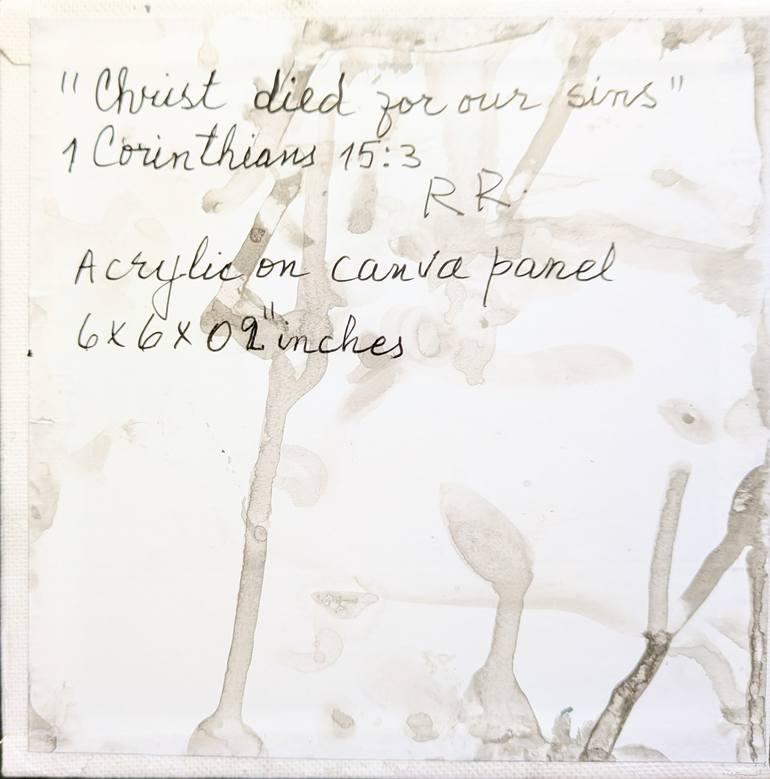 "Christ died for our sins"
1 Corinthians 15:3
R R.
Acrylic on canva panel
6x6x02" inches